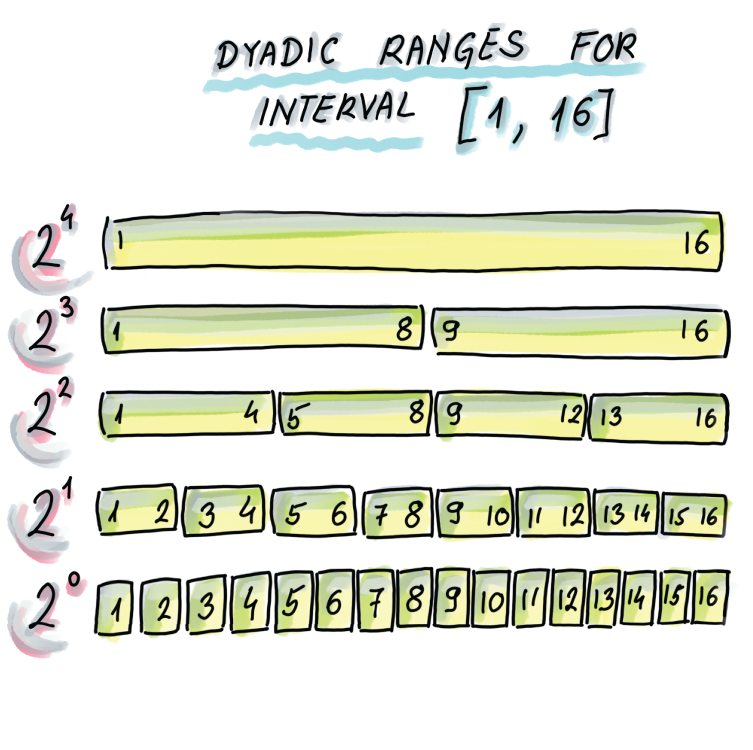 DYADIC RANGES FOR
INTERVAL [1, 16]
2⁴ 1 16
2³ 1 8 9 16
2² 1 4 5 8 9 12 13 16
2¹ 1 2 3 4 5 6 7 8 9 10 11 12 13 14 15 16
2⁰ 1 2 3 4 5 6 7 8 9 10 11 12 13 14 15 16